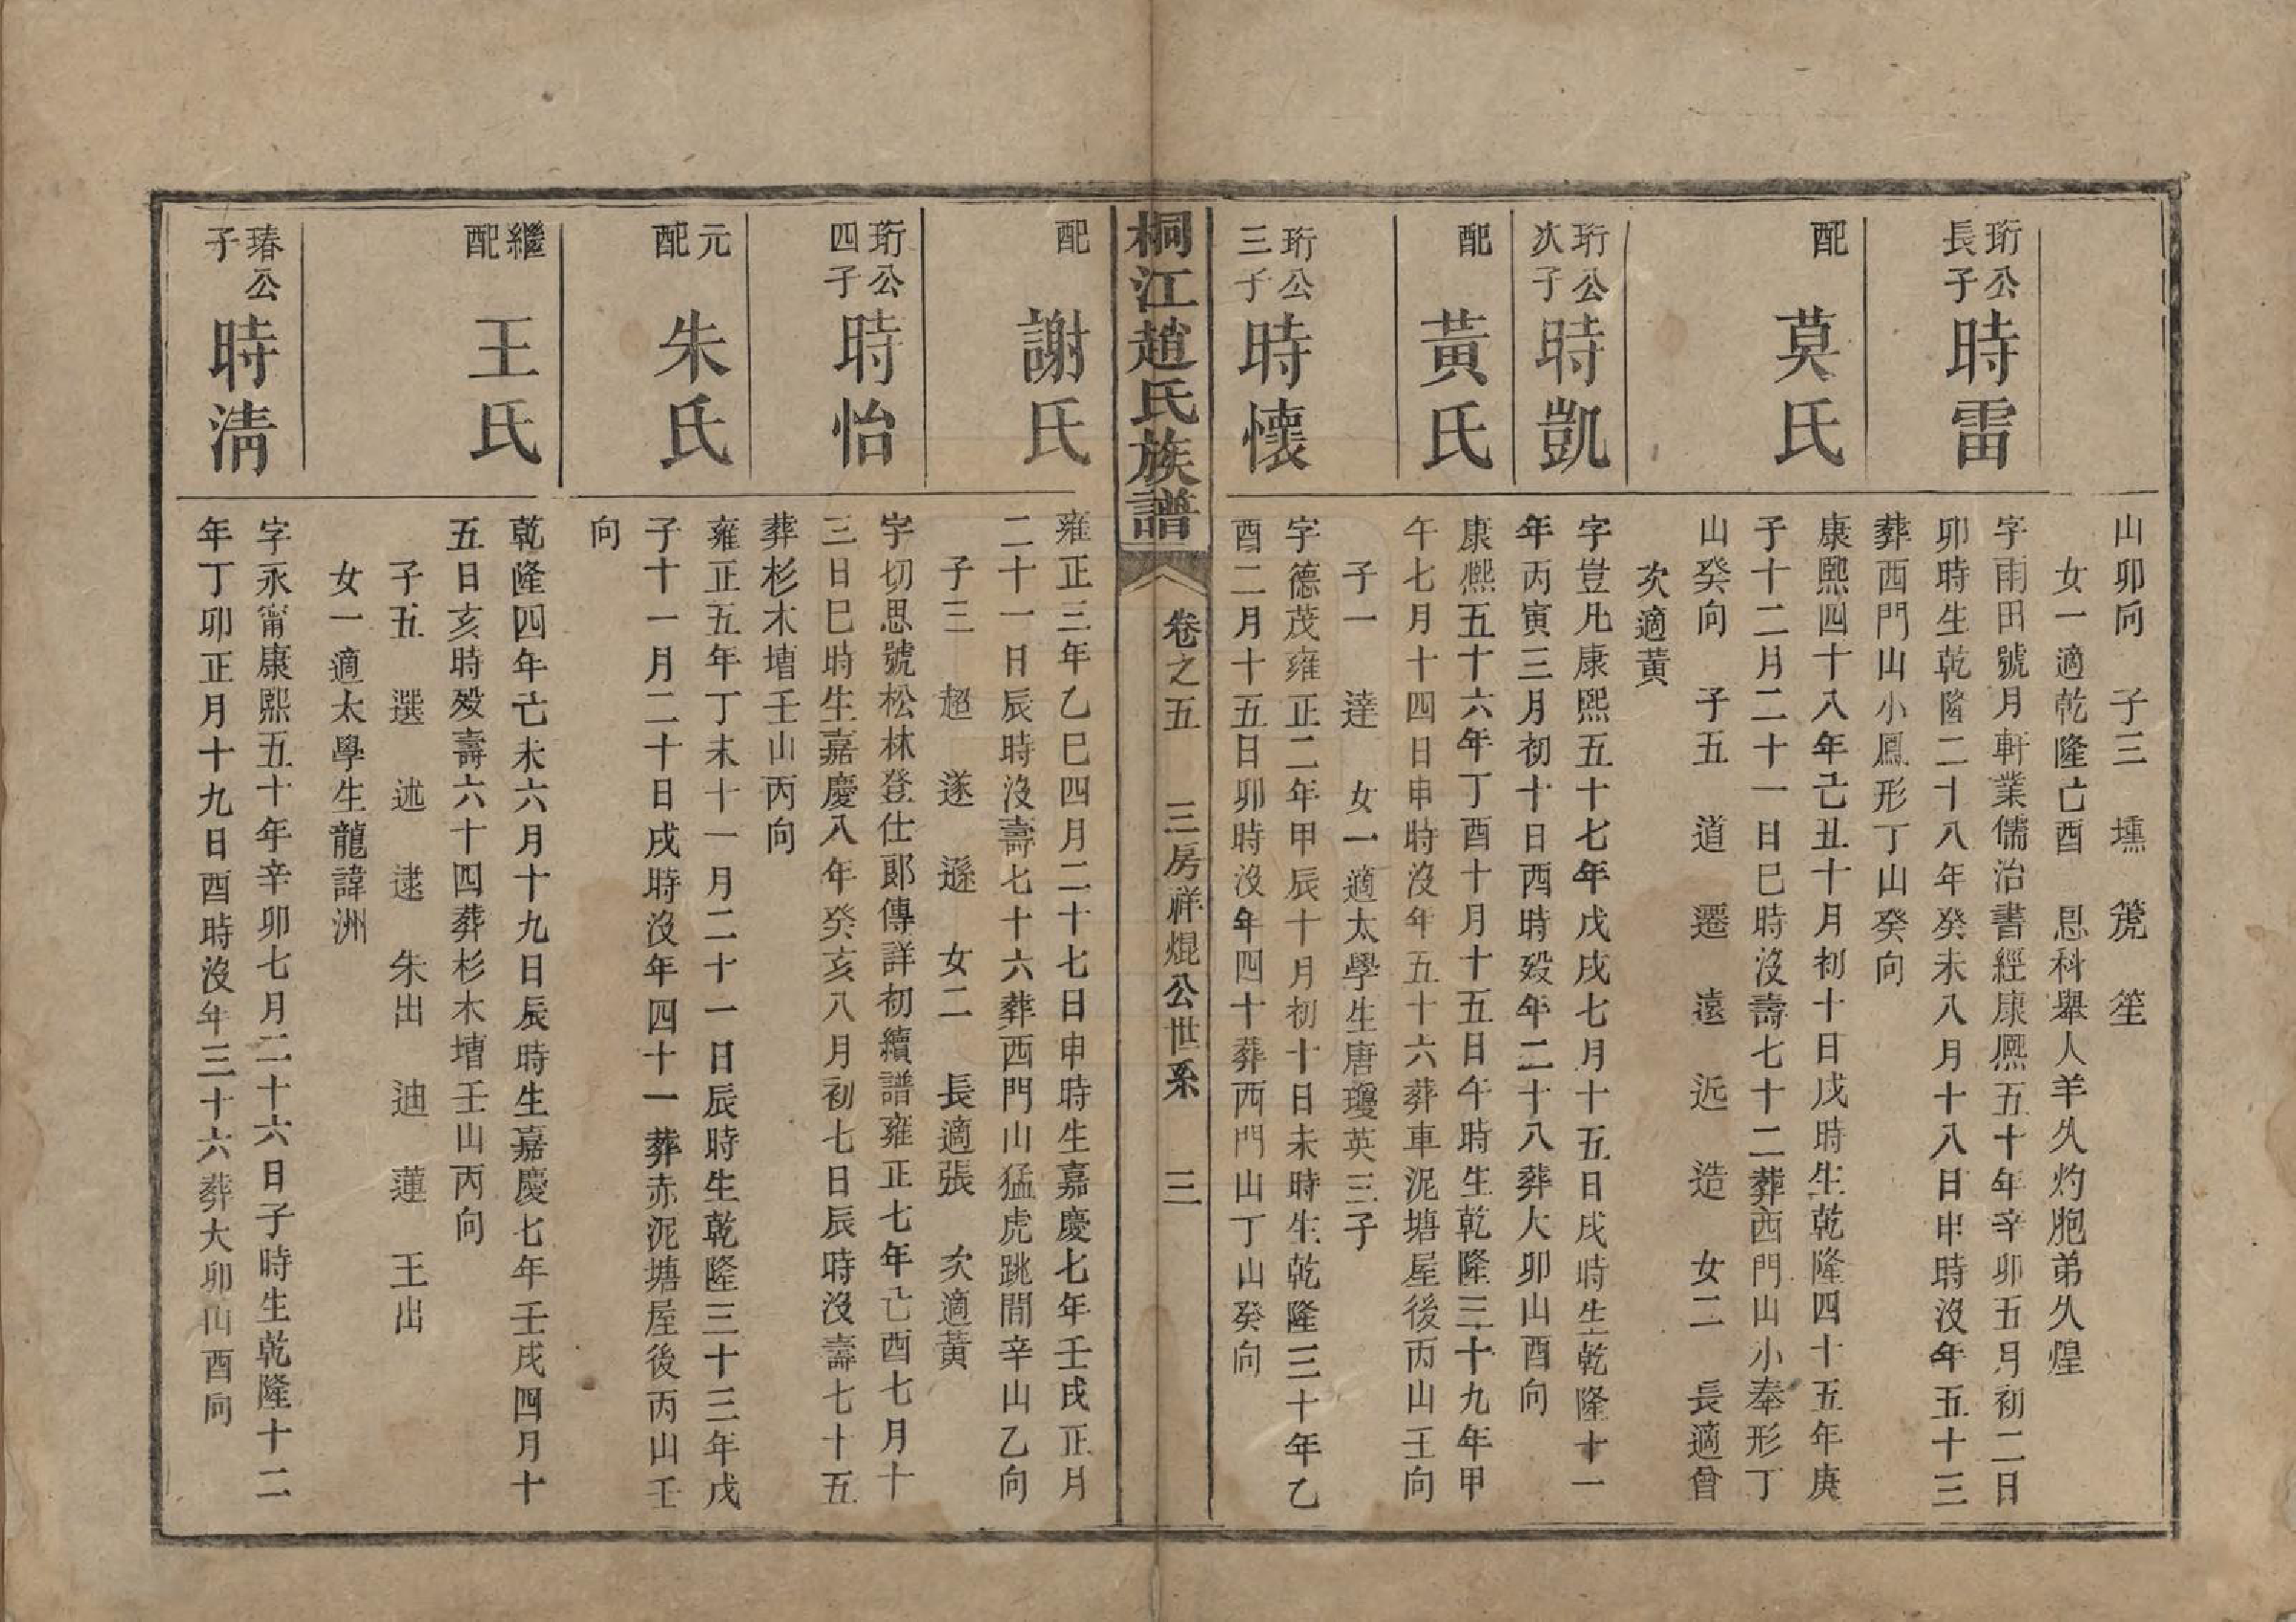 山卯向　子三　壎　箎　笙
女一適乾隆己酉　恩科舉人羊久灼胞弟久煌
珩公
長子
時雷
字雨田號月軒業儒治書經康熙五十年辛卯五月初二日
卯時生乾隆二十八年癸未八月十八日申時沒年五十三
葬西門山小鳳形丁山癸向
配
莫氏
康熙四十八年己丑十月初十日戌時生乾隆四十五年庚
子十二月二十一日巳時沒壽七十二葬西門山小奉形丁
山癸向　子五　道　遷　遠　近　造　女二　長適曾
次適黃
珩公
次子
時凱
字豈凡康熙五十七年戊戌七月十五日戌時生乾隆十一
年丙寅三月初十日酉時歿年二十八葬大卯山酉向
配
黃氏
康熙五十六年丁酉十月十五日午時生乾隆三十九年甲
午七月十四日申時沒年五十六葬車泥塘屋後丙山壬向
子一　達　女一適太學生唐瓊英三子
珩公
三子
時懷
字德茂雍正二年甲辰十月初十日未時生乾隆三十年乙
酉二月十五日卯時沒年四十葬西門山丁山癸向
桐江趙氏族譜
卷之五　三房祥焜公世系　三
配
謝氏
雍正三年乙巳四月二十七日申時生嘉慶七年壬戌正月
二十一日辰時沒壽七十六葬西門山猛虎跳間辛山乙向
子三　超　遂　遜　女二　長適張　次適黃
珩公
四子
時怡
字切思號松林登仕郎傳詳初續譜雍正七年己酉七月十
三日巳時生嘉慶八年癸亥八月初七日辰時沒壽七十五
葬杉木墰壬山丙向
元
配
朱氏
雍正五年丁未十一月二十一日辰時生乾隆三十三年戊
子十一月二十日戌時沒年四十一葬赤泥塘屋後丙山壬
向
繼
配
王氏
乾隆四年己未六月十九日辰時生嘉慶七年壬戌四月十
五日亥時歿壽六十四葬杉木墰壬山丙向
子五　選　述　逮　朱出　迪　蓮　王出
女一適太學生龍諱洲
瑃公
子
時淸
字永甯康熙五十年辛卯七月二十六日子時生乾隆十二
年丁卯正月十九日酉時沒年三十六葬大卯山酉向